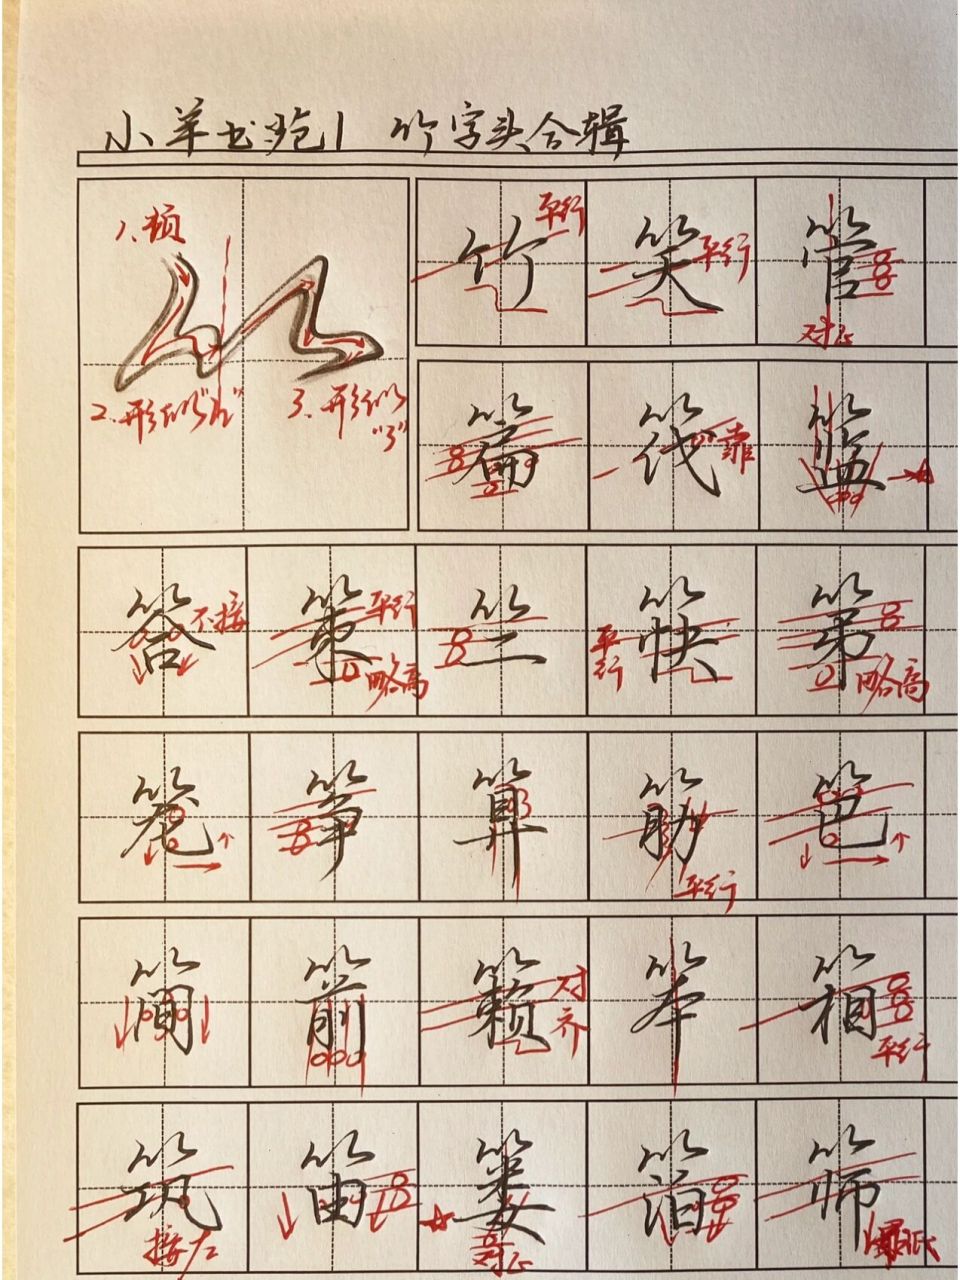 小羊书苑| 竹字头合辑
1、顿
2、形似"
3、形似
"3"
竹 平行 笑 平行 管 对正
篇 筏 靠 篮
答 不接 策 平行 略高 竺 筷 平行 第 略高
筝 算 筋 平行 笆
简 箭 籁 对齐 笨 箱 平行
筑 接左 笛 篓 对正 箔 筛